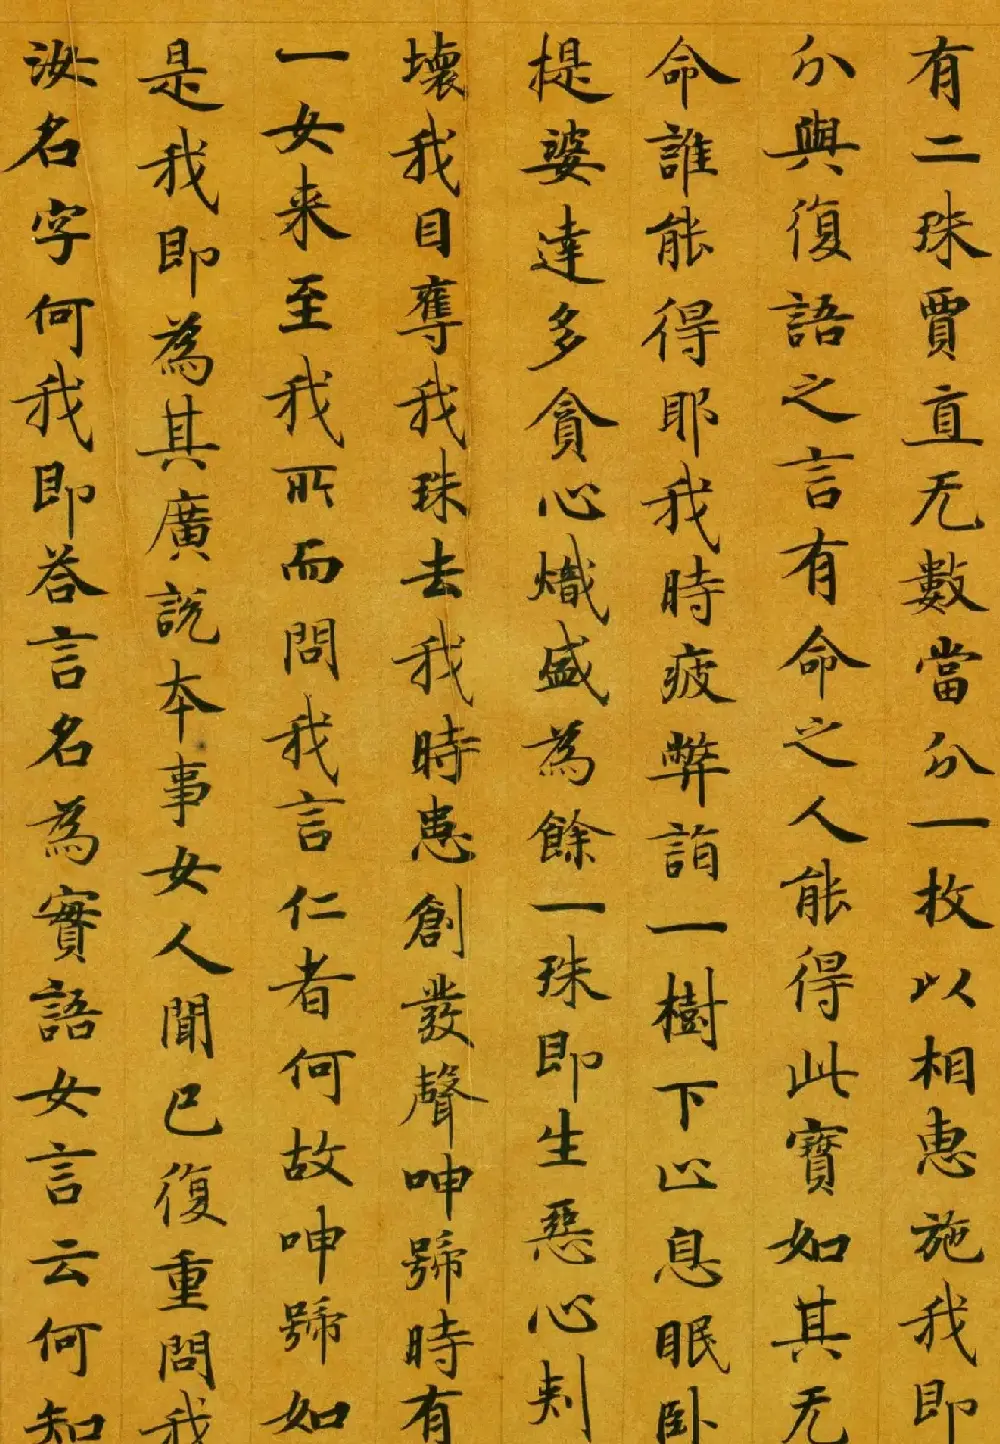 有二珠賈直无數當分一枚以相惠施我即
分與復語之言有命之人能得此寶如其无
命誰能得耶我時疲弊詣一樹下止息眠卧
提婆達多貪心熾盛為餘一珠即生惡心刾
壞我目奪我珠去我時患創發聲呻號時有
一女来至我所而問我言仁者何故呻號如
是我即為其廣說本事女人聞已復重問我
汝名字何我即荅言名為實語女言云何知